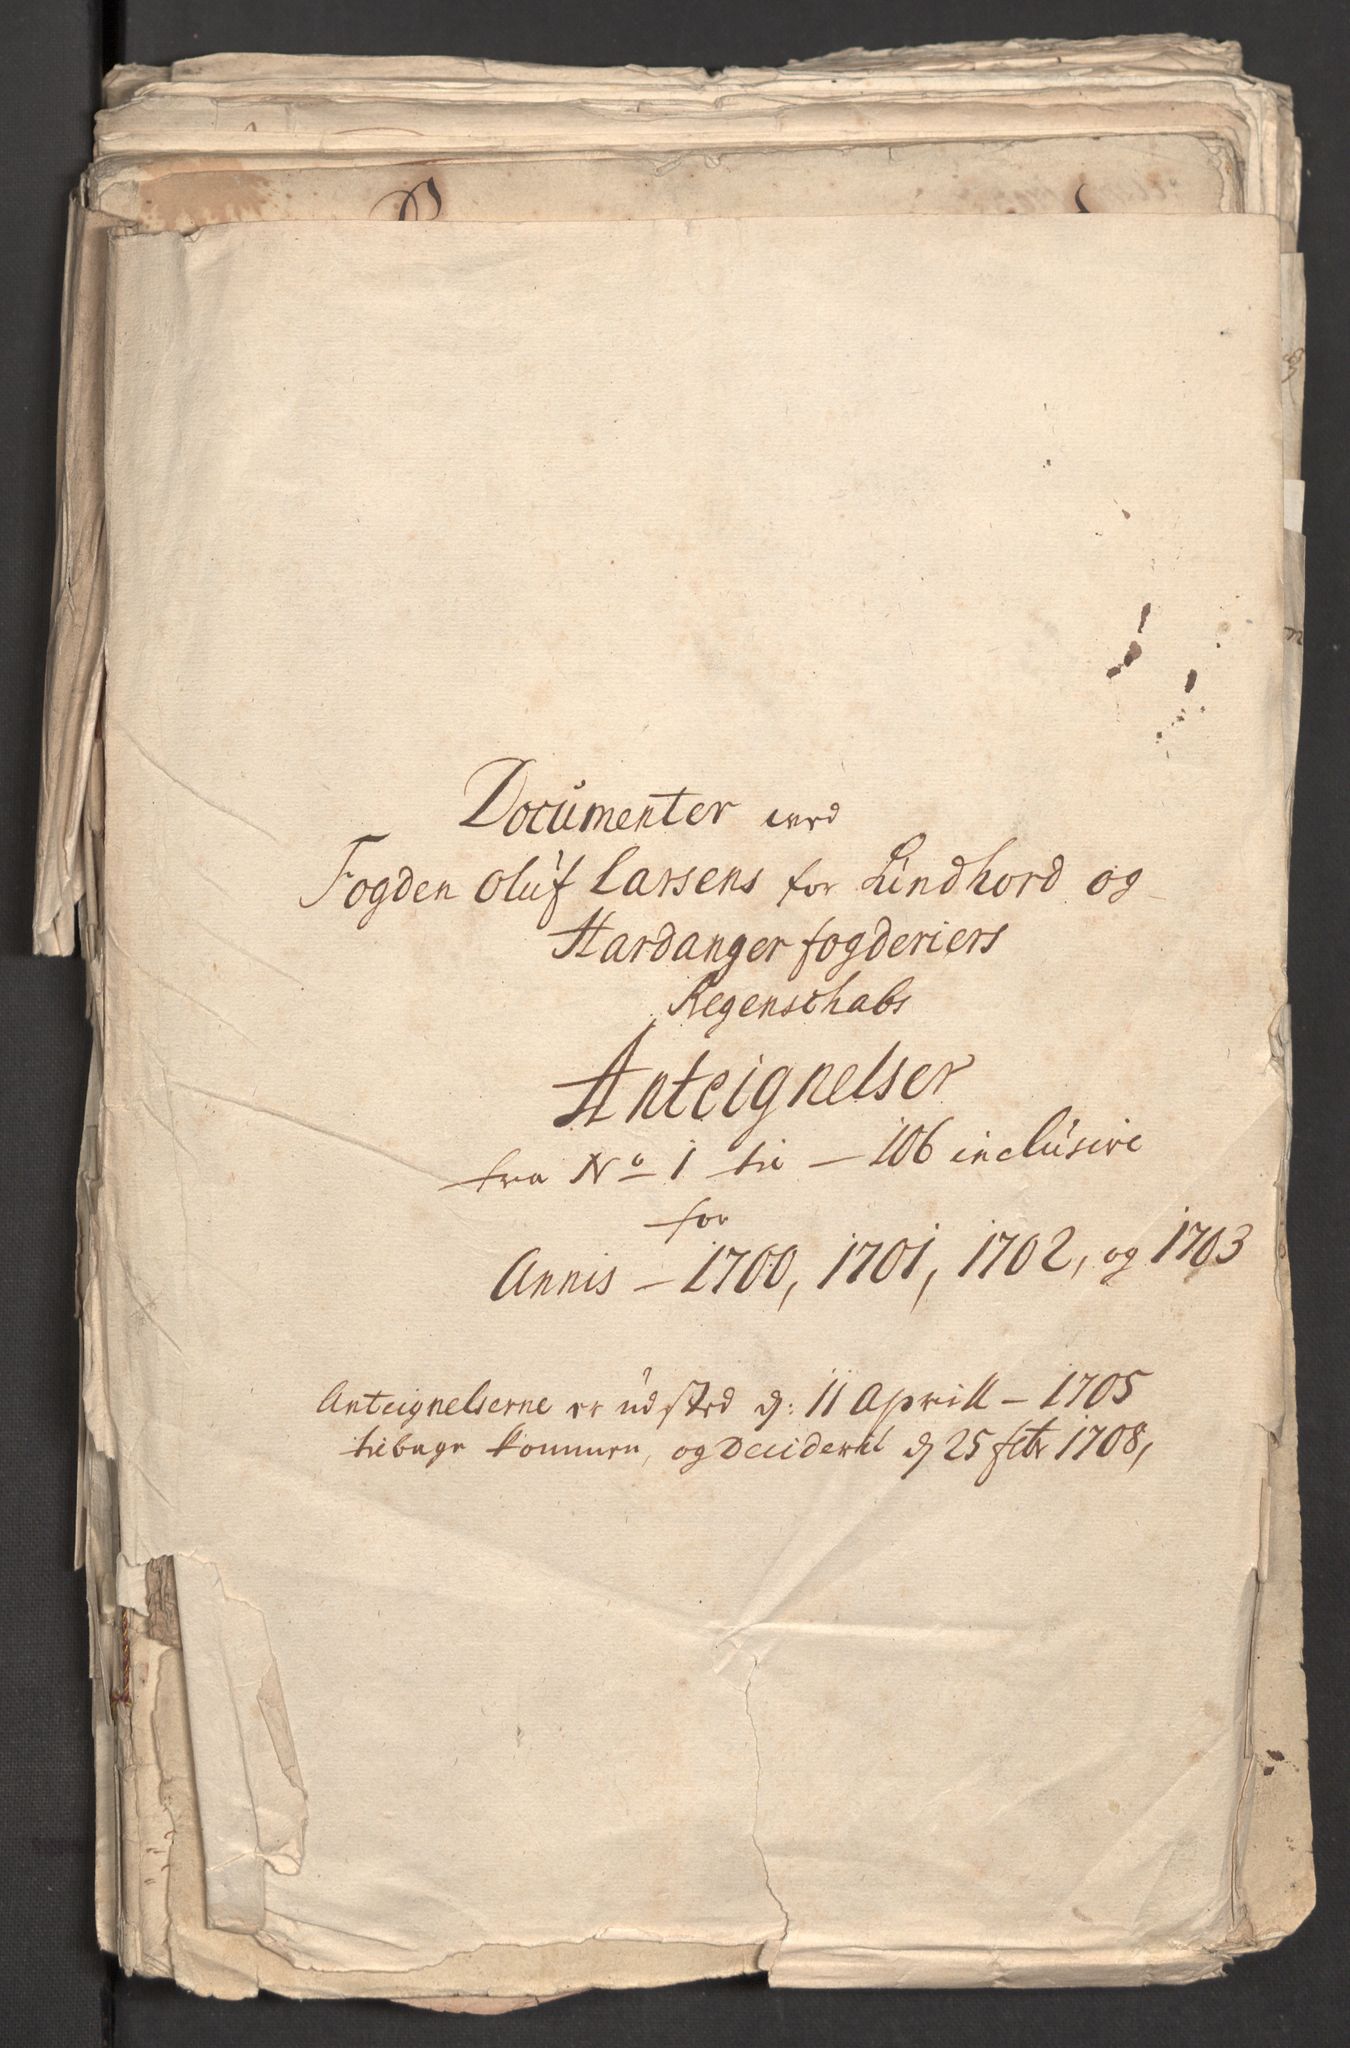 Documenter ved
Fogden Oluf Larsens for Lindhord og
Hardanger fogderiers
Regenschabs
Anteignelser
fra No 1 til – 106 inclusive
for
Annis – 1700, 1701, 1702, og 1703
Anteignelserne er udsted d: 11 Aprill – 1705
tilbage kommen, og Deciderit d 25 febr 1708,